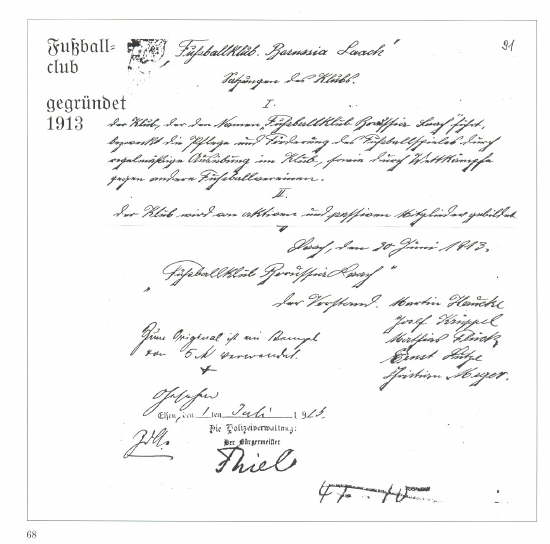 Fußball-
club
gegründet
1913
91
„Fußballklub Borussia Laach“
Satzungen des Klubs.
I.
Der Klub, der den Namen „Fußballklub Borussia Laach“ führt,
bezweckt die Pflege und Förderung des Fußballspieles durch
regelmäßige Ausübung im Klub, sowie durch Wettkämpfe
gegen andere Fußballvereinen.
II.
Der Klub wird von aktiven und passiven Mitglieder gebildet
Laach, den 30 Juni 1913.
„Fußballklub Borussia Laach“
Der Vorstand. Martin
Josef Krüppel
Mathias
Ernst
Christian Meyer.
Zum Original ist ein Stempel
von 5 M verwendet.
Gesehen
den 1 ten Juli 1913.
Die Polizeiverwaltung:
Der Bürgermeister
Thiel
68